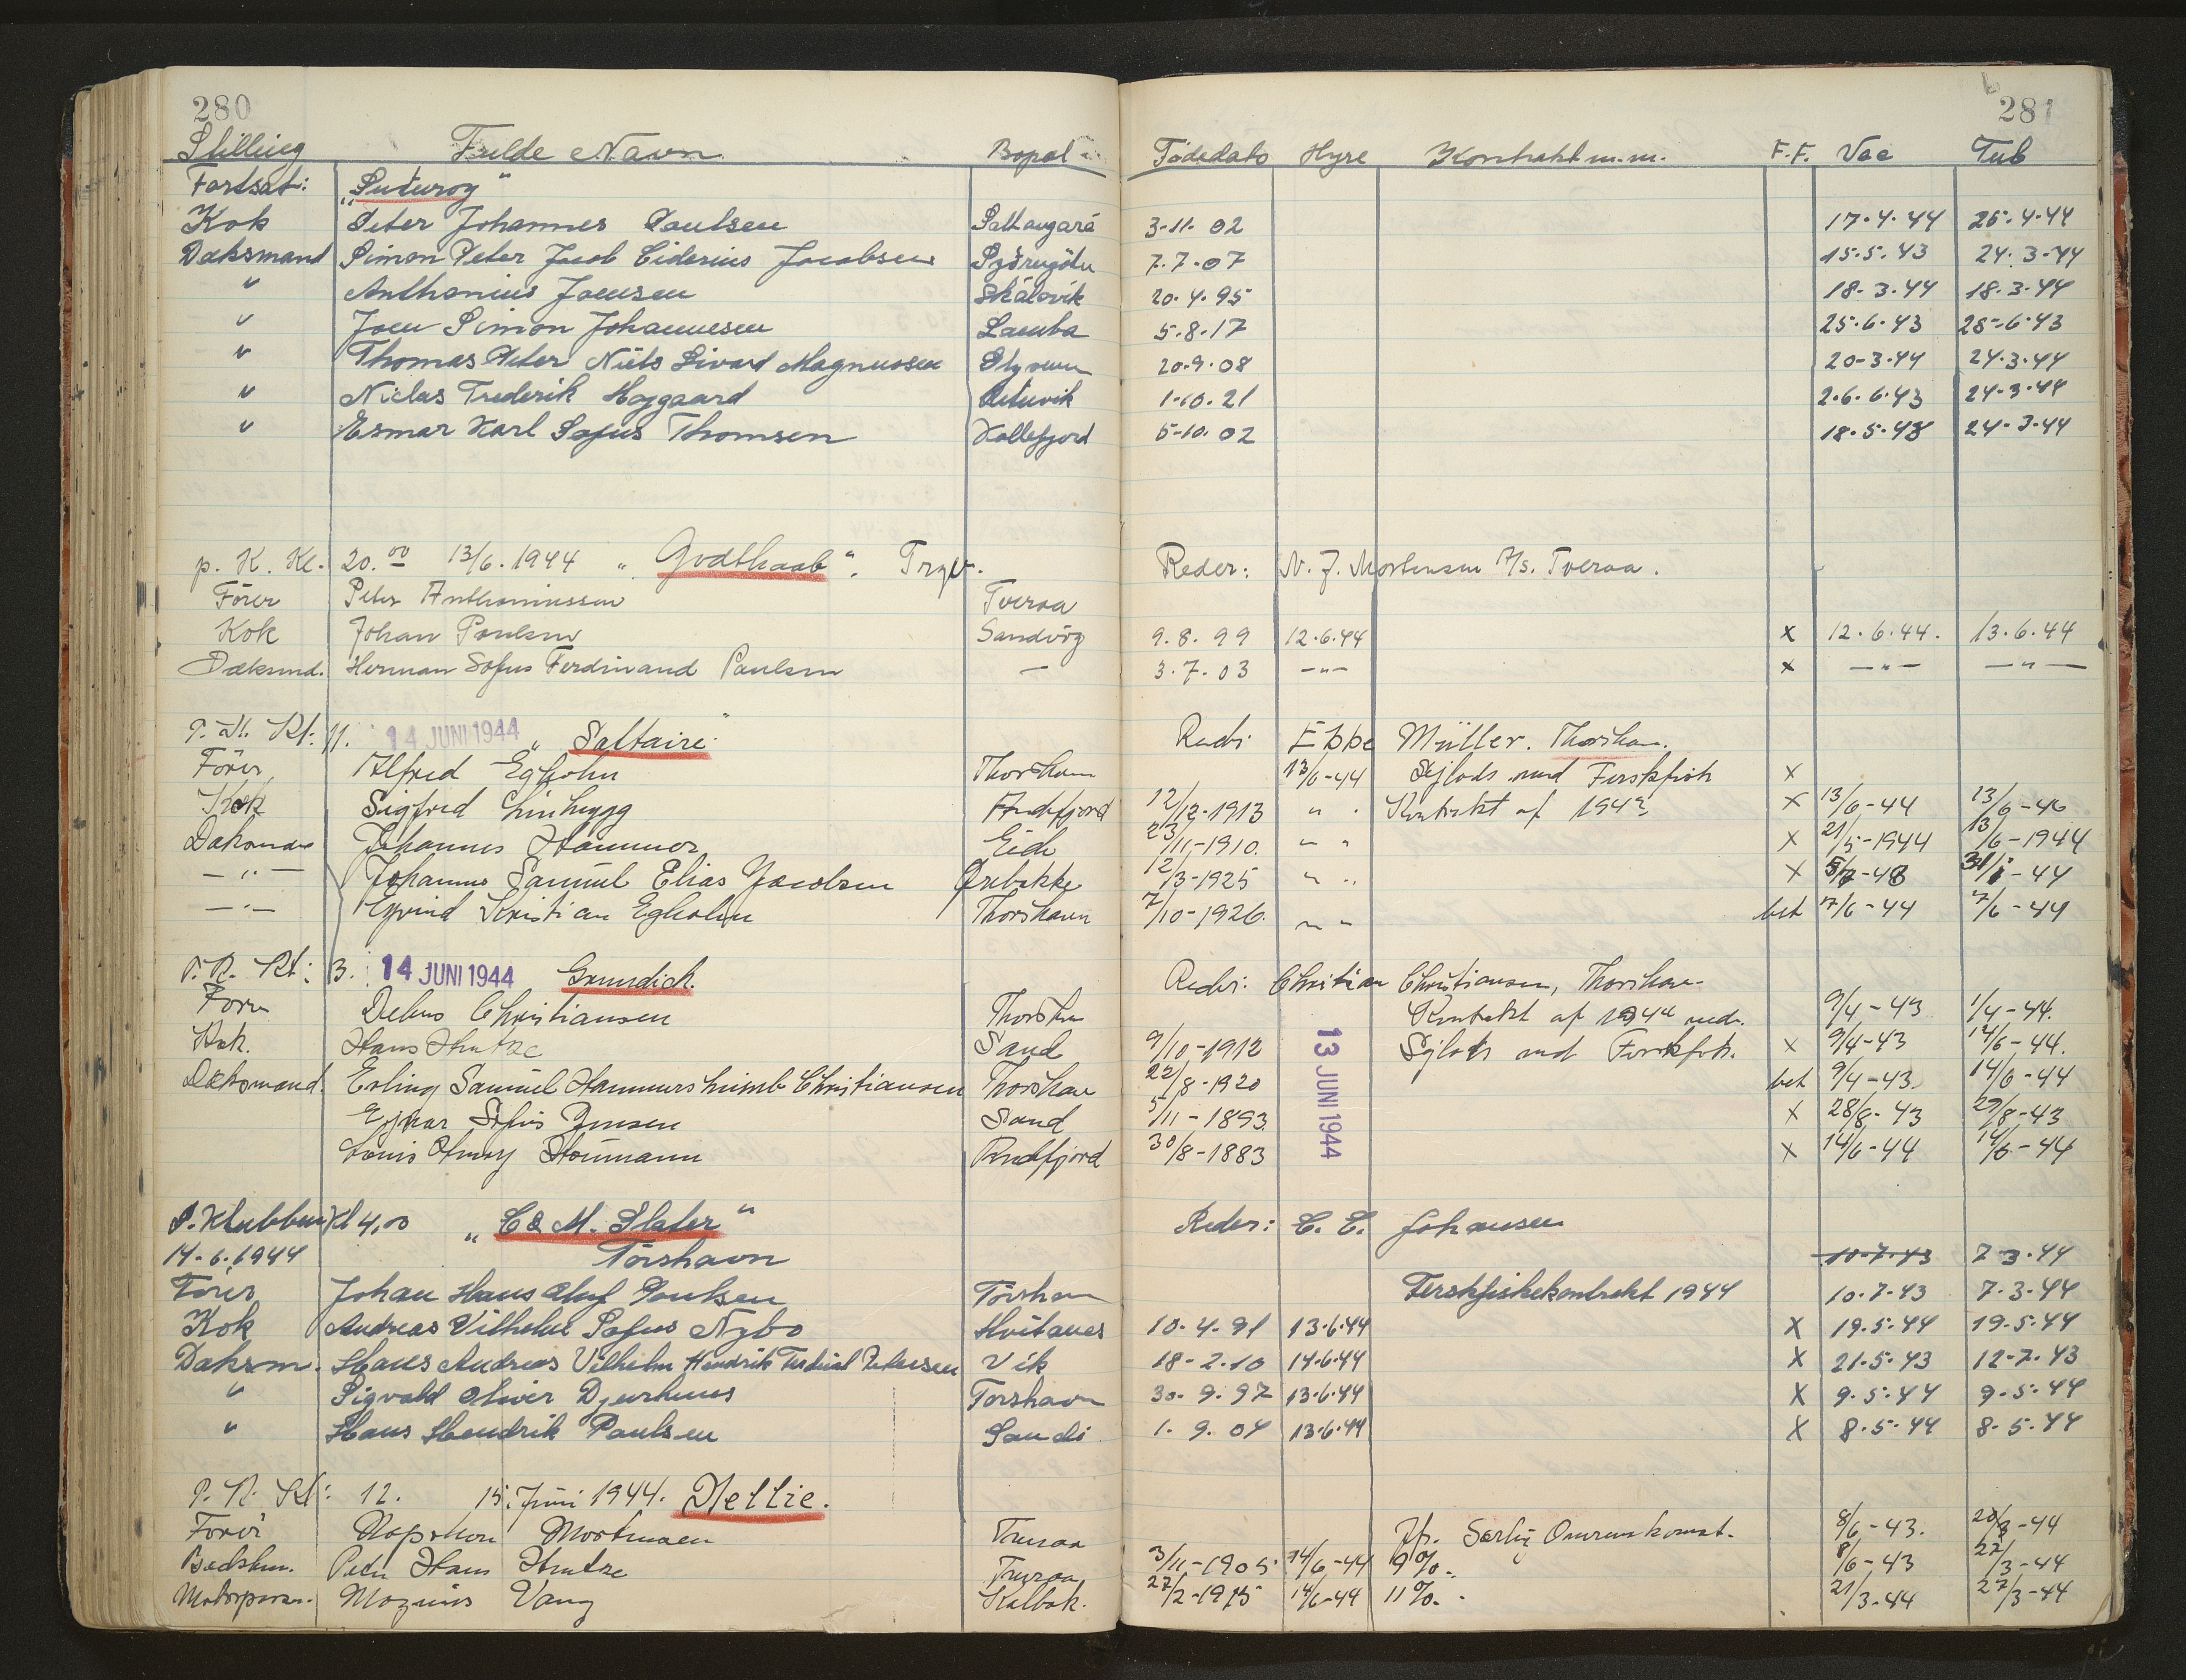 280
281
Stilling Fulde Navn Bopæl Födedato Hyre Kontrakt m.m. F.F. Vac Tub
Fortsat: "Suduroy"
Kok Peter Johannes Poulsen Saltangará 3-11-02 17-4-44 25-4-44
Dæksmand Simon Peter Jacob Ciderius Jacobsen 7-7-07 15-5-43 24-3-44
" Anthonius Joensen Skálavik 20-4-95 18-3-44 18-3-44
" Joen Simon Johannesen Lamba 5-8-17 25-6-43 25-6-43
" Thomas Peter Niels Sivard Magnussen 20-9-08 20-3-44 24-3-44
" Niclas Frederik Højgaard 1-10-21 2-6-43 24-3-44
" Esmar Karl Sofus Thomsen Kollefjord 5-10-02 18-5-43 24-3-44
p. K. Kl. 20.00 13/6.1944 "Godthaab". Trgv. Reder: N. J. Mortensen A/s. Tveraa.
Förer Peter Anthoniussen Tveraa
Kok Johan Poulsen Sandvög 9.8.99 12.6.44 x 12.6.44. 13.6.44
Dæksmd. Herman Sofus Ferdinand Paulsen — 3.7.03 —"— x —"— —"—
P. K. Kl: 11. 14 JUNI 1944 "Saltaire" Rederi Ebbe Müller. Thorshavn.
Förer Alfred Egholm Thorshavn 13/6-44 Sejlads med Ferskfisk x
Kok Sigfred 12/12-1913 " " Kontrakt af 1942 x 13/6-44 13/6-46
Dæksmand Johannes Hammer Eide 23/11-1910. " " x 21/5-1944 13/6-1944
—"— Johannes Samúel Elias Jacobsen Ørebakke 12/3-1925 " " x 44
—"— Ejvind Kristian Egholm Thorshavn 7/10-1926. " " bet 7/6-44 7/6-44
P. K. Kl: 3. 14 JUNI 1944 Grundick. Reder: Christian Christiansen, Thorshavn.
Förer Debes Christiansen Thorshavn Kontrakt af 1944 ved. 9/4-43 1/4-44.
Kok. Hans Hentze Sand 9/10-1912 13 JUNI 1944 Sejlads med Ferskfisk. x 9/4-43 14/6-44.
Dæksmand. Erling Samúel Hammershaimb Christiansen Thorshavn 22/8-1920 bet 9/4-43 14/6-44
Ejnar Sofus Jensen Sand 5/11-1893. x 28/8-43 29/8-43
Louis 30/8-1883 x 14/6-44 14/6-44
P. Klubben Kl 4,00 "C & M. Slater" Reder: C. C. Johansen
14-6.1944 Tórshavn 10-7-43 7 3-44
Förer Johan Hans Oluf Poulsen Tórshavn Ferskfiskekontrakt 1944 10-7-43 7-3-44
Kok Andreas Vilhelm Sofus Nybo Hvítanes 10-4-91 13-6-44 X 19.5-44 19-5-44
Dæksm. Hans Andreas Vilhelm Hendrik Ferdinand Petersen Vik 18-2-10 14-6-44 X 21-5-43 12-7-43
" Sigvald Oliver Djurhuus Torshavn 30-9-97 13-6-44 X 9-5-44 9-5-44
" Hans Hendrik Paulsen Sandi 1-9-04 13-6-44 X 8-5-44 8-5-44
P. K. Kl: 12. 15. Juni 1944. Nellie.
Förer Napoleon Mortensen Tveraa Ifr. Særlig Overenskomst. 8/6-43.
Bedstm. Peter Hans Hentze Tveraa 3/11-1905 14/6-44 9%. 8/6-43 22/3-44
Motorpasser. Magnus Vang Kalbak. 27/2-1915 14/6-44 11%. 21/3-44 27/3-44